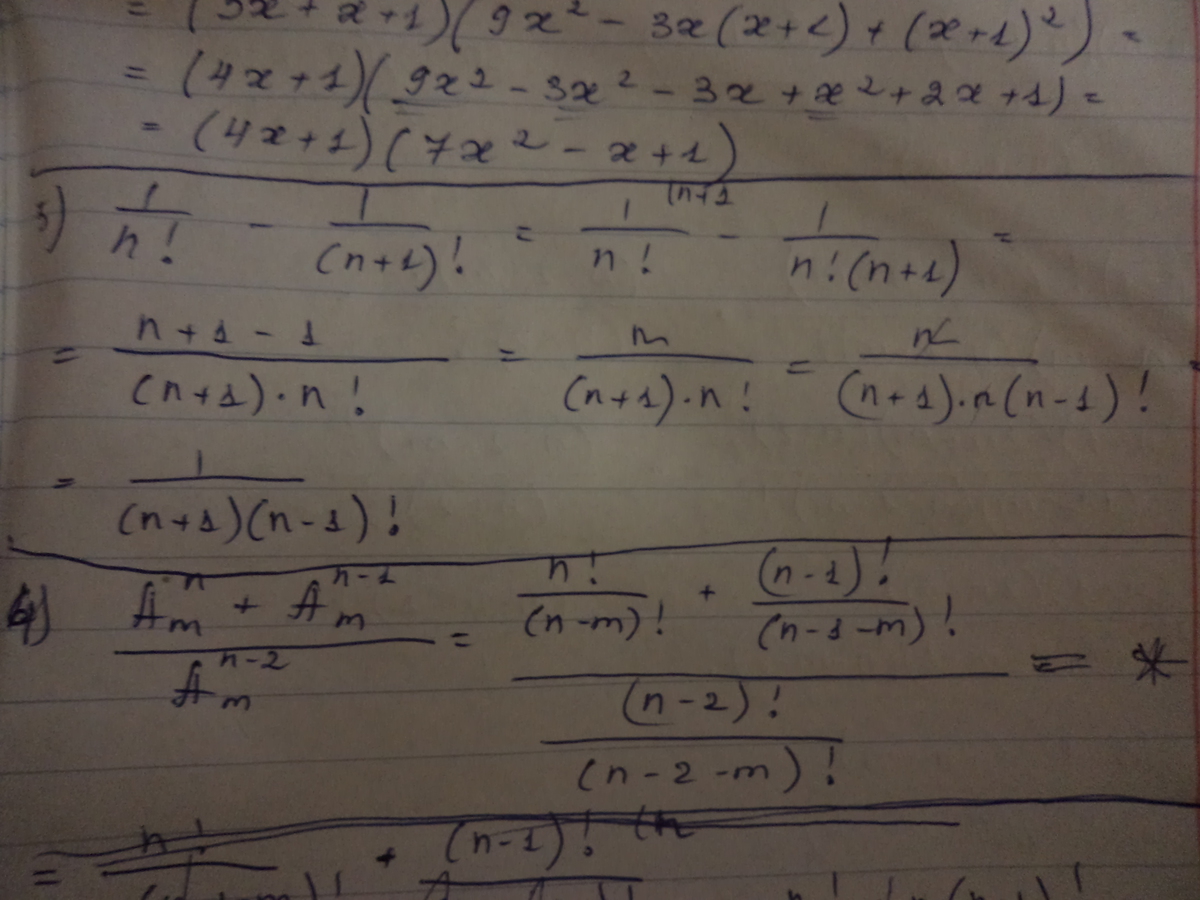 = (3x + x + 1)(9x² - 3x(x+1) + (x+1)²) =
= (4x+1)(9x² - 3x² - 3x + x² + 2x + 1) =
= (4x+1)(7x² - x + 1)
5) 1/n! - 1/(n+1)! = 1/n! (n+1 - 1/(n!(n+1)) =
= (n+1-1)/((n+1)·n!) = n/((n+1)·n!) = n/((n+1)·n(n-1)!) =
= 1/((n+1)(n-1)!)
6) (A_m^n + A_m^{n-1})/A_m^{n-2} = (n!/(n-m)! + (n-1)!/(n-1-m)!)/((n-2)!/(n-2-m)!) = *
= n! + (n-1)! (n